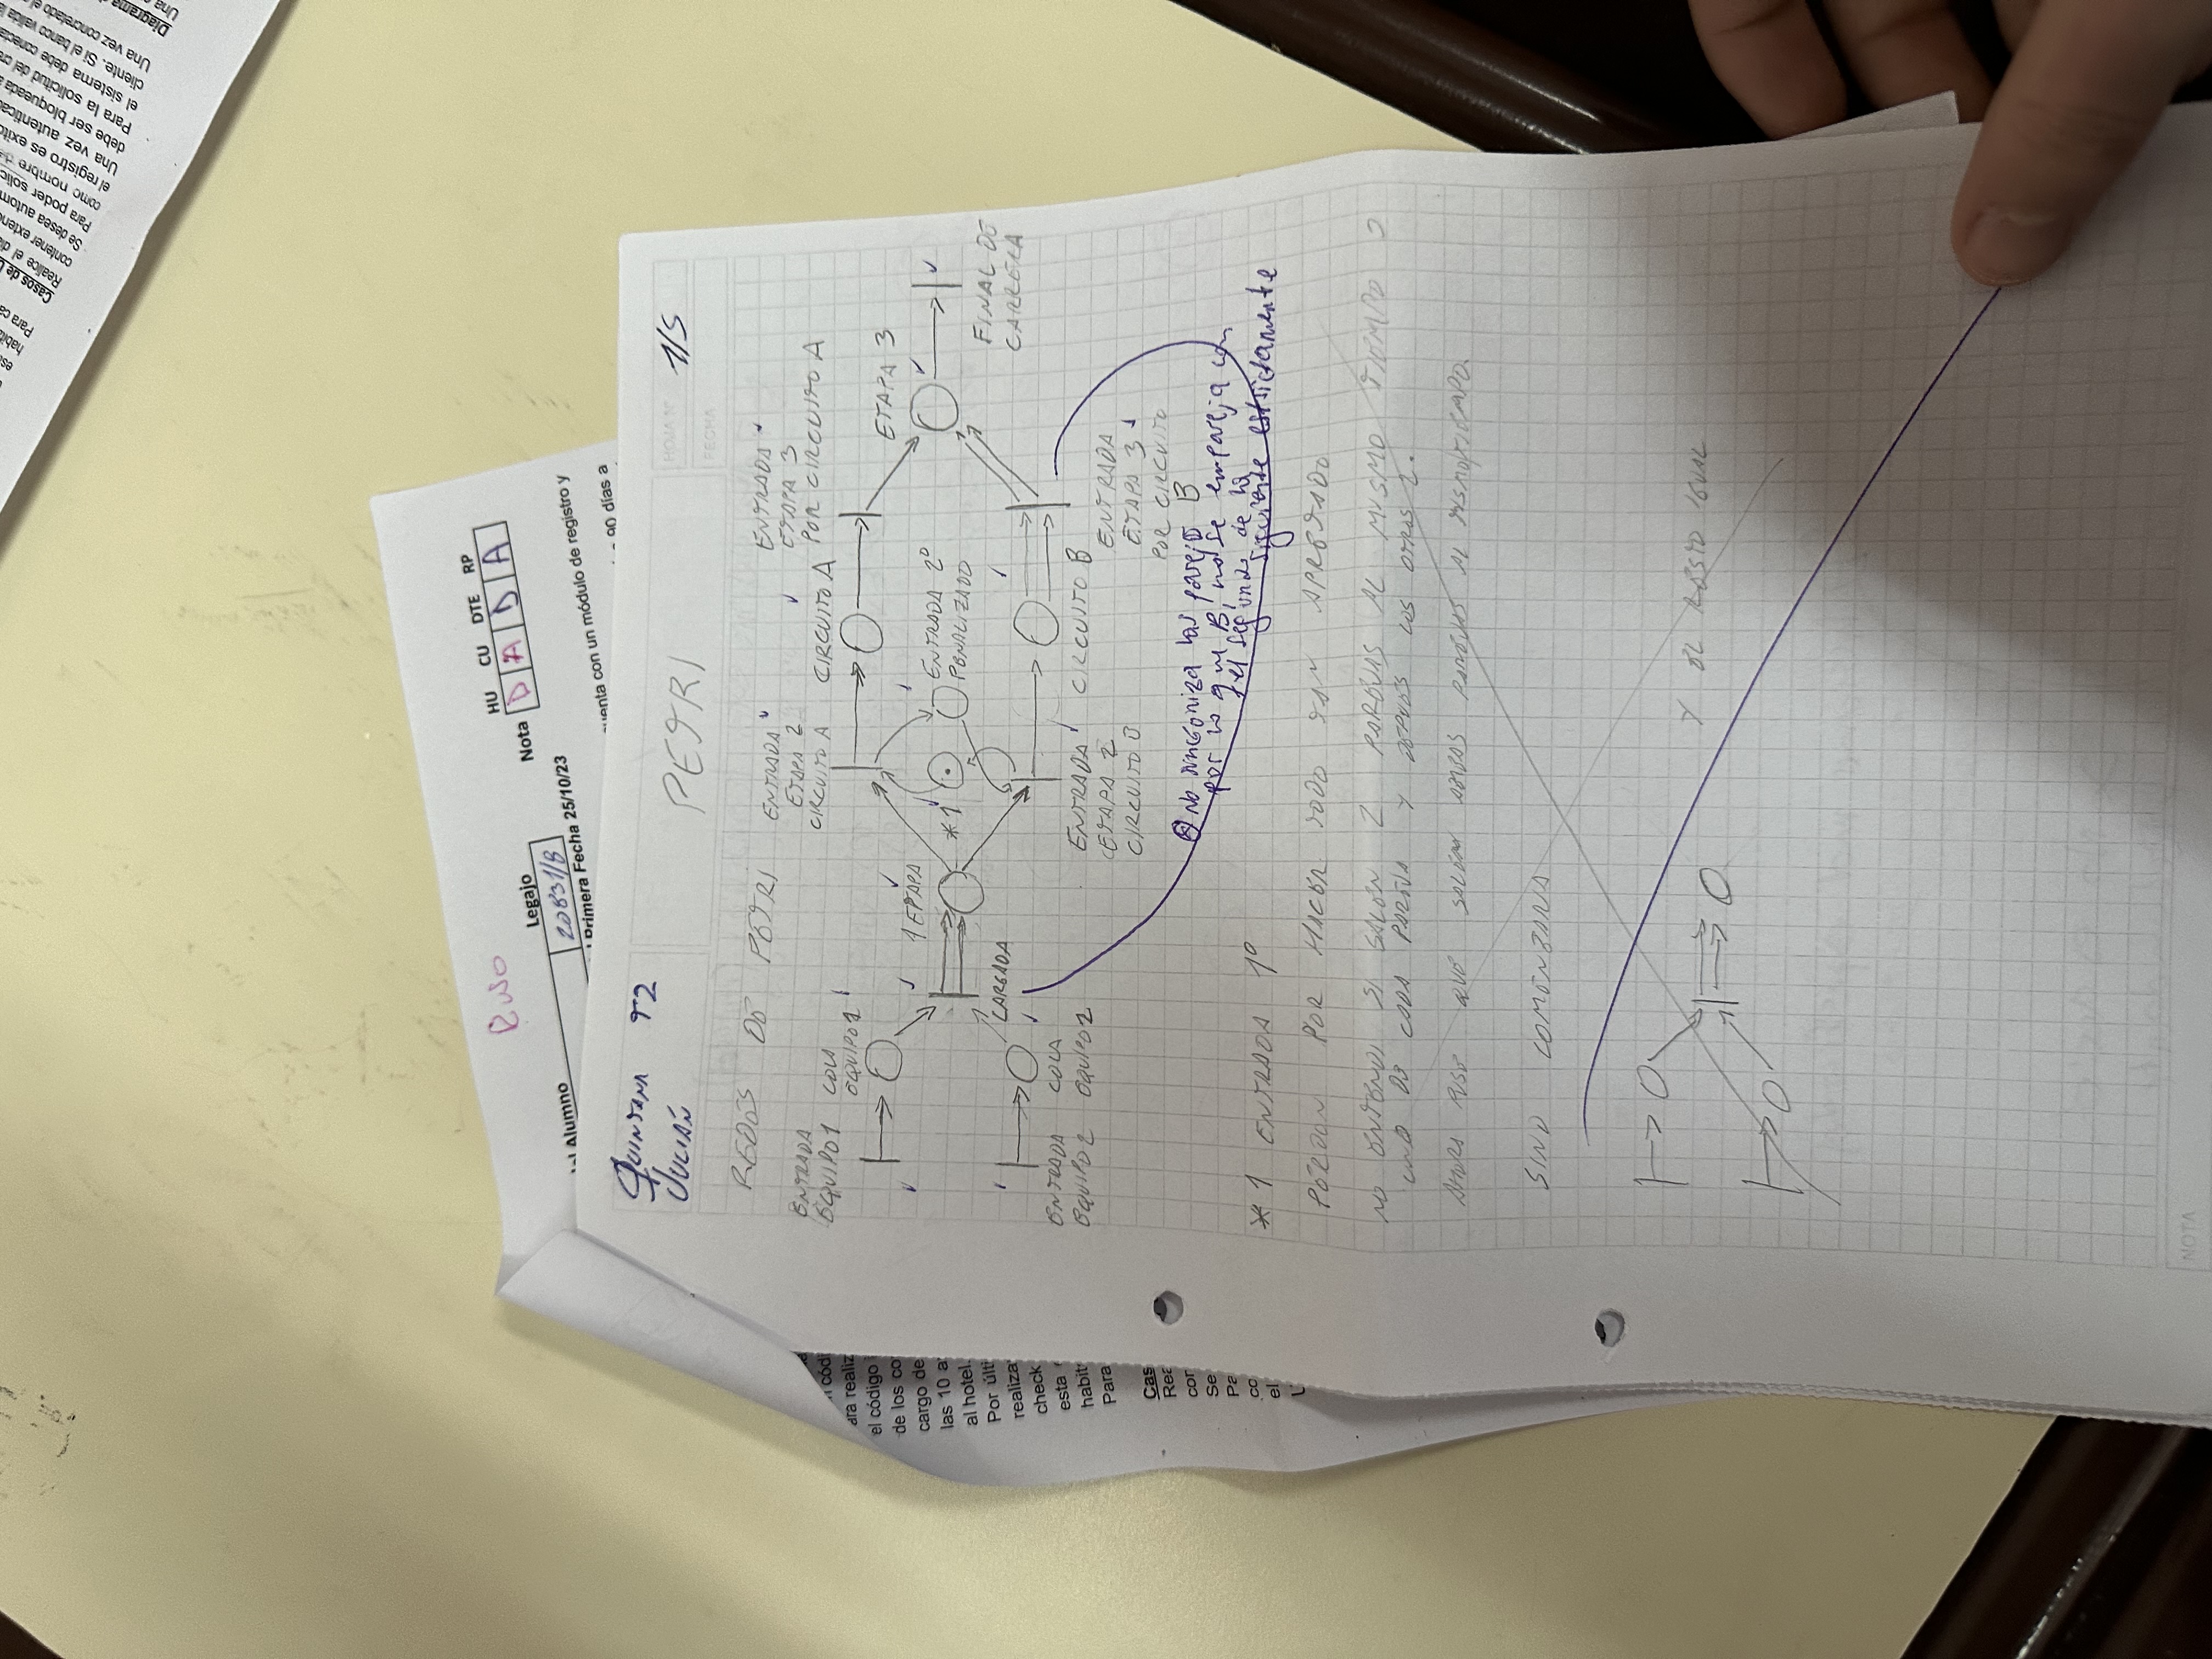 es
habi
Para ca
Casos de U
Realice el di
contener exten
Se desea autom
Para poder solic
como nombre de
el registro es exito
Una vez autentica
debe ser bloqueada
Para la solicitud del cr
el sistema debe conecta
cliente. Si el banco valida la
Una vez concretado el
Diagrama
Una
RUSO
HU CU DTE RP
Nota D A D A
Legajo
l Alumno 20831/8
Primera Fecha 25/10/23
uenta con un módulo de registro y
90 días a
n códi
ara realiz
el código
de los co
cargo de
las 10 a
al hotel.
Por últi
realiza
check
esta
habit
Para
Cas
Rea
cor
Se
Pa
co
el
U
QUINTANA T2
JULIÁN
PETRI
HOJA Nº 1/5
FECHA
REDES DE PETRI
ENTRADA EQUIPO 1
COLA EQUIPO 1
ENTRADA ETAPA 2 CIRCUITO A
CIRCUITO A
ENTRADA ETAPA 3 POR CIRCUITO A
1 ETAPA
*1
ENTRADA 2º PENALIZADO
ETAPA 3
LARGADA
FINAL DE CARRERA
ENTRADA EQUIPO 2
COLA EQUIPO 2
ENTRADA ETAPA 2 CIRCUITO B
CIRCUITO B
ENTRADA ETAPA 3 POR CIRCUITO B
No sincroniza las parejas
por lo que B, no se empareja con
el segundo de la
siguiente estrictamente
*1 ENTRADA 1º
PERDON POR HACER TODO TAN APRETADO
NO ENTENDI SI SALEN 2 PAREJAS AL MISMO TIEMPO O
UNO DE CADA PAREJA Y DEPUES LOS OTROS 2.
AHORA PUSE QUE SALEN AMBAS PAREJAS AL MISMO TIEMPO.
SINO COMENZARIA
Y EL RESTO IGUAL
NOTA